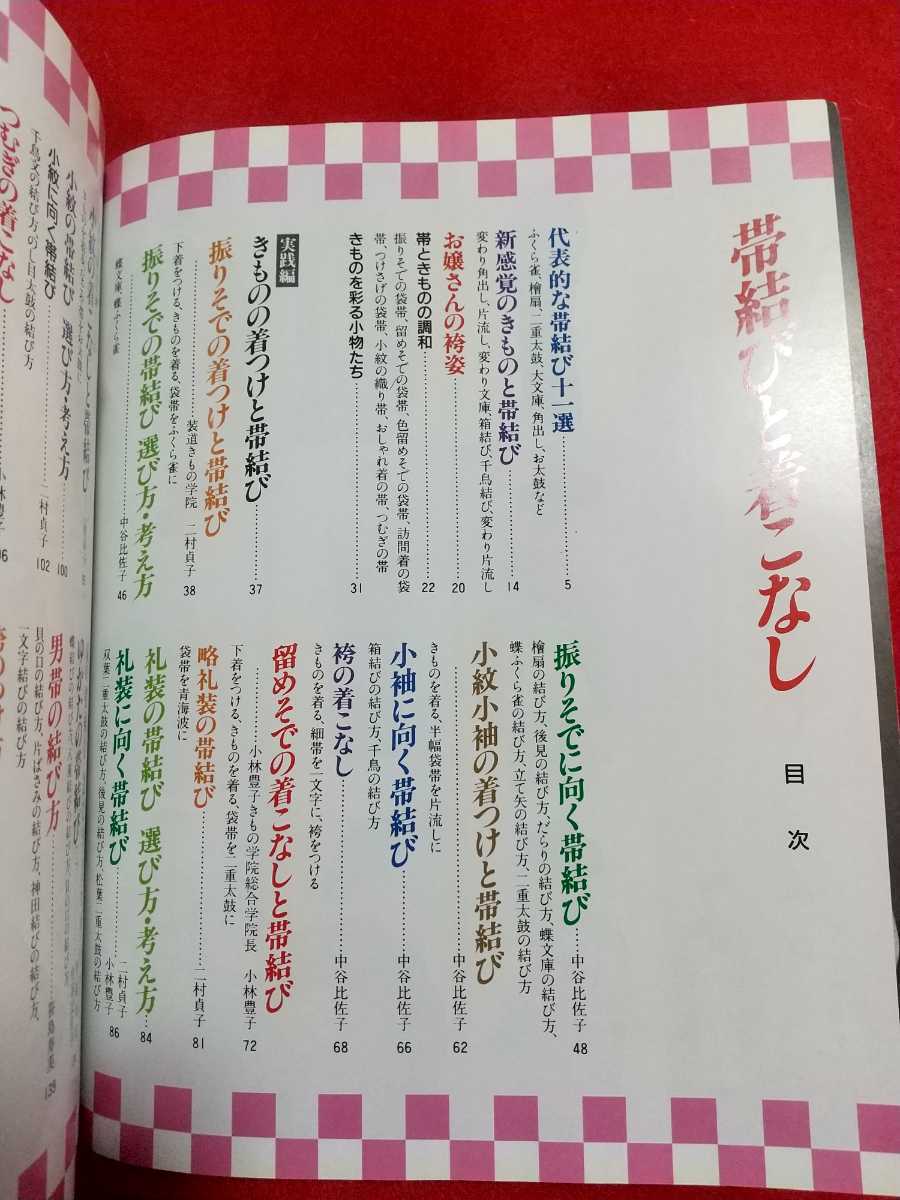 帯結びと着こなし
目次
代表的な帯結び十一選……5
ふくら雀、檜扇、二重太鼓、大文庫、角出し、お太鼓など
新感覚のきものと帯結び……14
変わり角出し、片流し、変わり文庫、箱結び、千鳥結び、変わり片流し
お嬢さんの袴姿……20
帯ときものの調和……22
振りそでの袋帯、留めそでの袋帯、色留めそでの袋帯、訪問着の袋
帯、つけさげの袋帯、小紋の織り帯、おしゃれ着の帯、つむぎの帯
きものを彩る小物たち……31
実践編
きものの着つけと帯結び……37
振りそでの着つけと帯結び
……装道きもの学院 二村貞子 38
下着をつける、きものを着る、袋帯をふくら雀に
振りそでの帯結び 選び方・考え方
……中谷比佐子 46
蝶文庫、蝶ふくら雀
振りそでに向く帯結び……中谷比佐子 48
檜扇の結び方、後見の結び方、だらりの結び方、蝶文庫の結び方、
蝶ふくら雀の結び方、立て矢の結び方、二重太鼓の結び方
小紋小袖の着つけと帯結び
……中谷比佐子 62
きものを着る、半幅袋帯を片流しに
小袖に向く帯結び……中谷比佐子 66
箱結びの結び方、千鳥の結び方
袴の着こなし……中谷比佐子 68
きものを着る、細帯を一文字に、袴をつける
留めそでの着こなしと帯結び
……小林豊子きもの学院総合学院長 小林豊子 72
下着をつける、きものを着る、袋帯を二重太鼓に
略礼装の帯結び……二村貞子 81
袋帯を青海波に
礼装の帯結び 選び方・考え方…84
礼装に向く帯結び……二村貞子 小林豊子 86
双葉二重太鼓の結び方、後見の結び方、松葉二重太鼓の結び方
小紋の帯結び 選び方・考え方
100
小紋に向く帯結び……二村貞子 102
つむぎの着こなし
男帯の結び方
139
貝の口の結び方、片ばさみの結び方、神田結びの結び方、
一文字結びの結び方